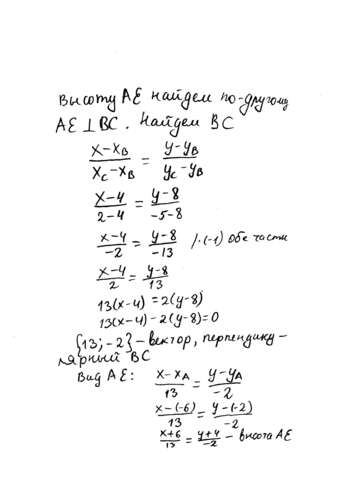 Высоту AE найдем по-другому
AE ⊥ BC. Найдем BC
(x-x_B)/(x_C-x_B) = (y-y_B)/(y_C-y_B)
(x-4)/(2-4) = (y-8)/(-5-8)
(x-4)/(-2) = (y-8)/(-13) /·(-1) обе части
(x-4)/2 = (y-8)/13
13(x-4) = 2(y-8)
13(x-4)-2(y-8)=0
{13;-2} - вектор, перпендику-
лярный BC
Вид AE: (x-x_A)/13 = (y-y_A)/(-2)
(x-(-6))/13 = (y-(-2))/(-2)
(x+6)/13 = (y+4)/(-2) - высота AE